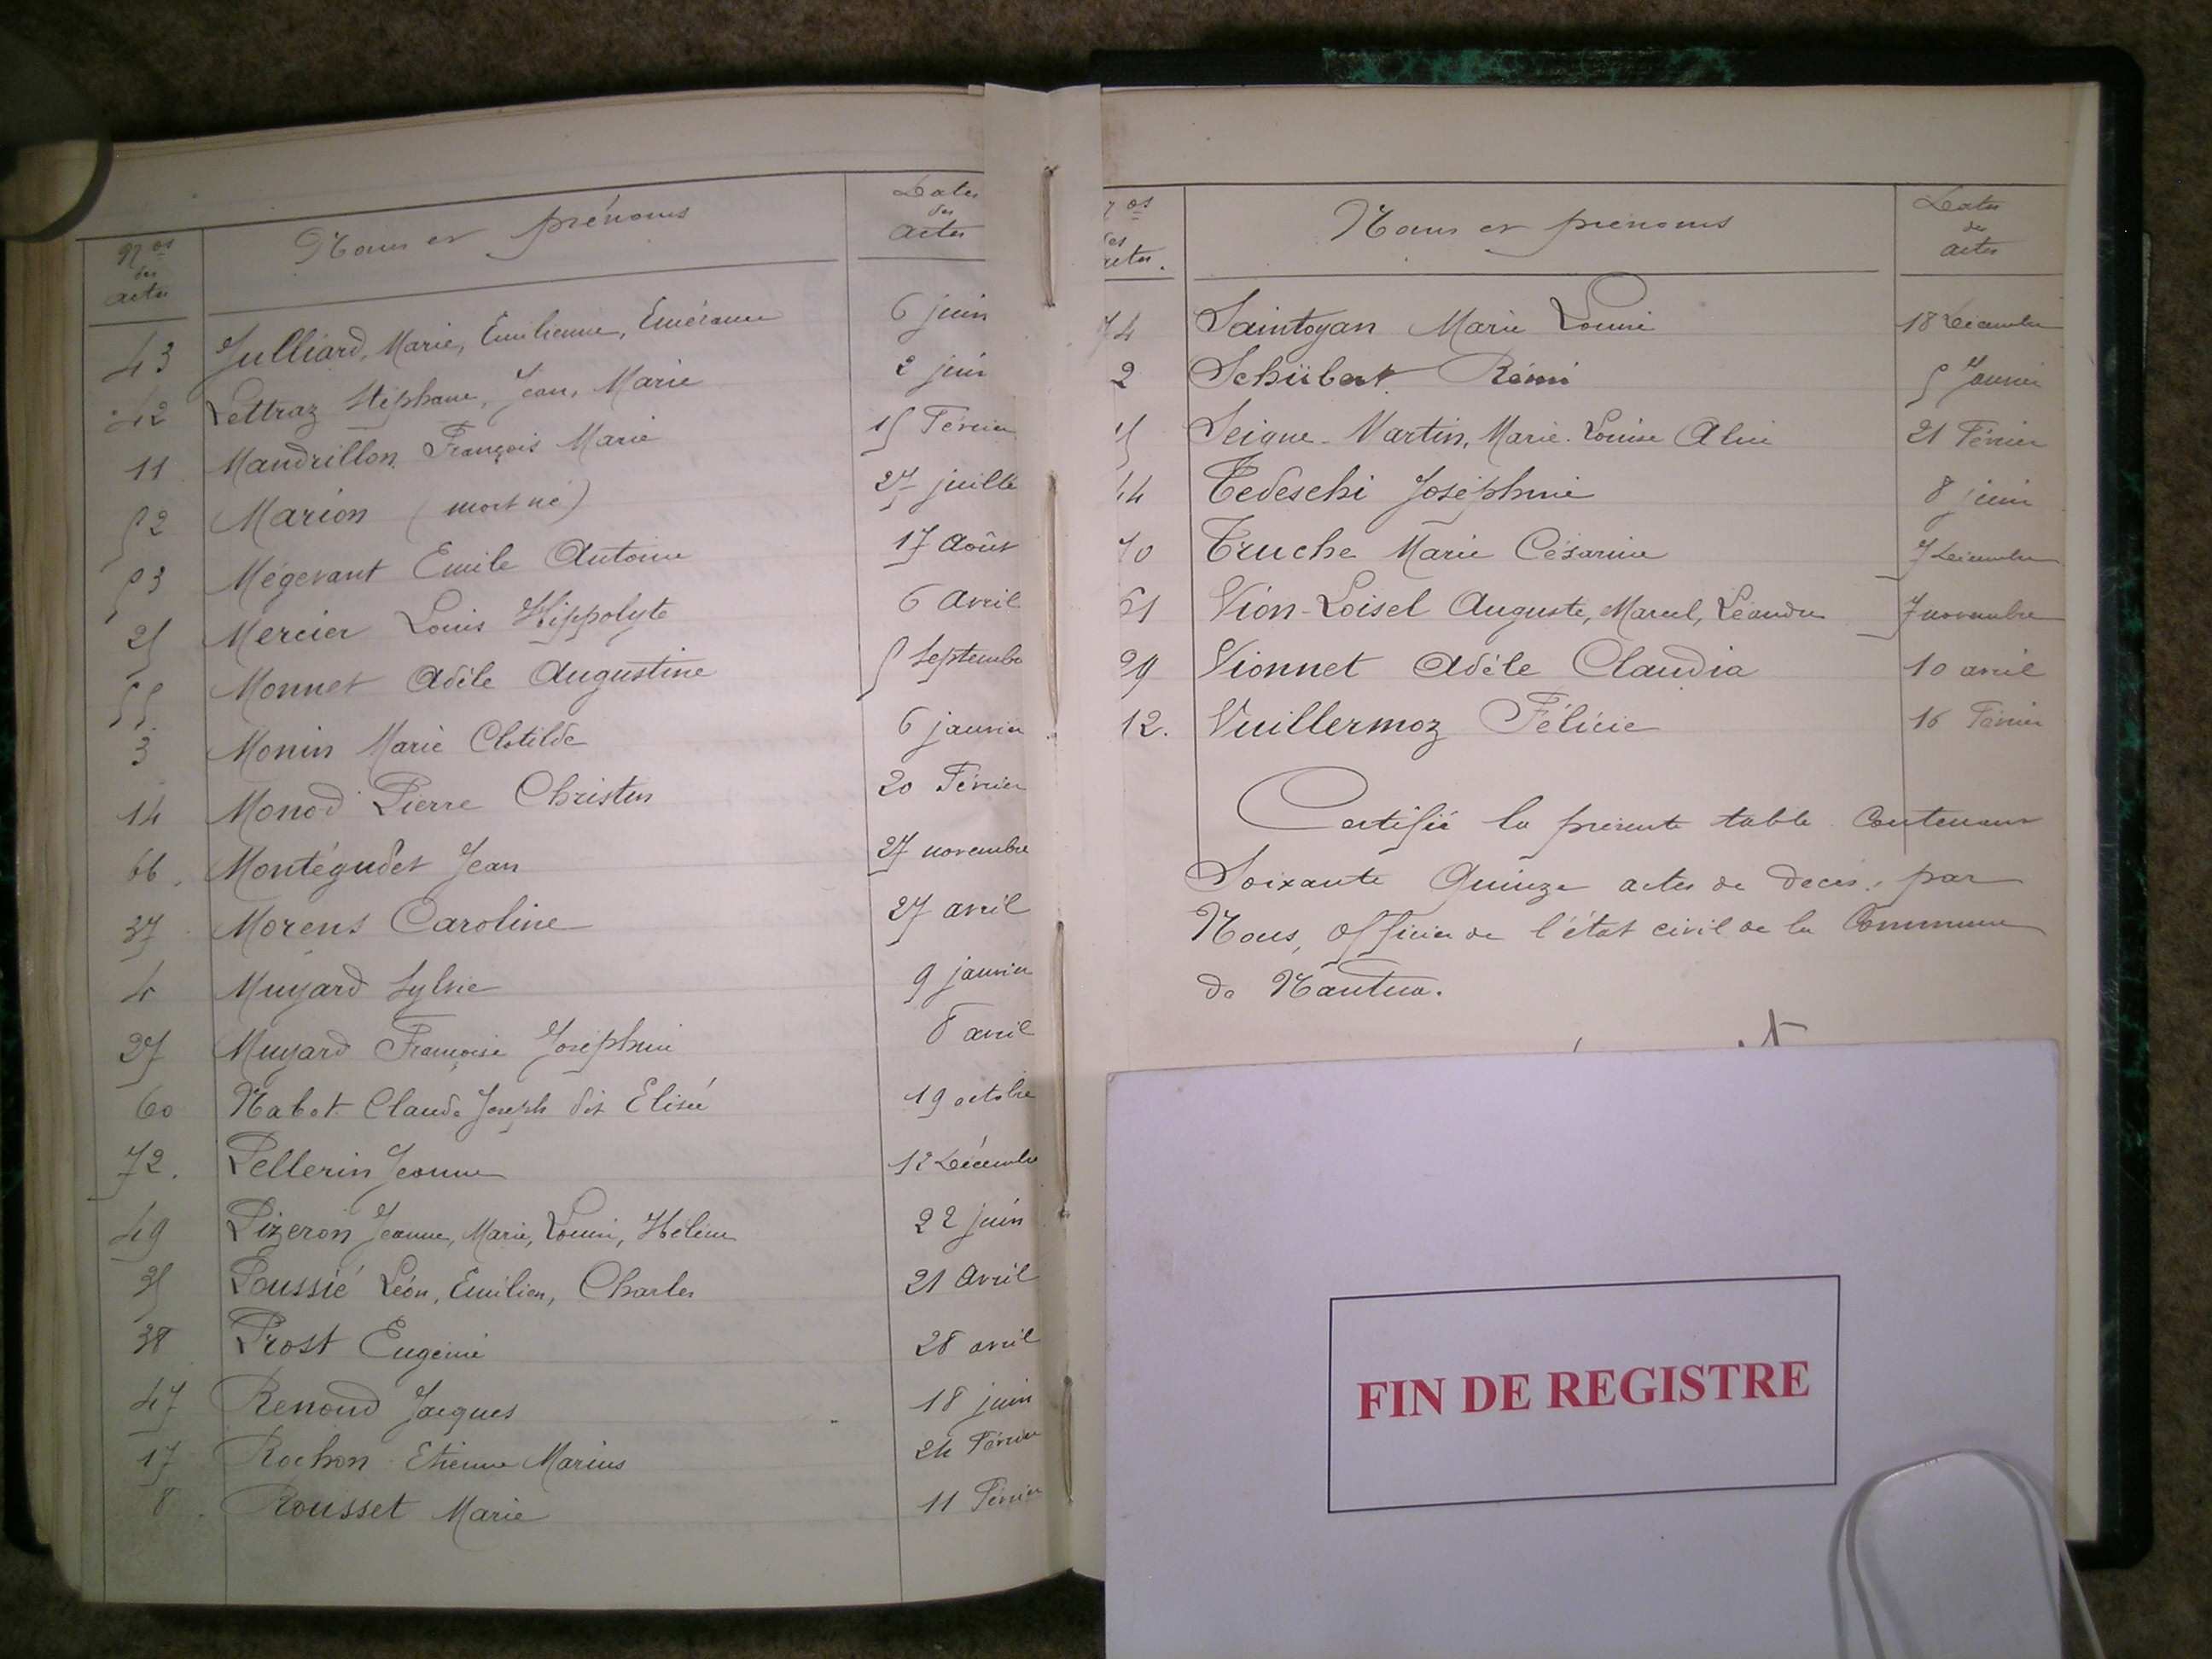 Nos des actes Noms et prénoms Dates des Actes
43 Julliard, Marie, Emilienne, Emérance 6 juin
42 Lettraz Stéphane, Jean, Marie 2 juin
11 Mandrillon François Marie 15 Février
52 Marion (mort né) 27 juillet
53 Mégevant Emile Antoine 17 Août
25 Mercier Louis Hippolyte 6 Avril
55. Monnet Adèle Augustine 5 Septembre
3 Monin Marie Clotilde 6 janvier
14 Monod Pierre Christin 20 Février
66. Montégudet Jean 27 novembre
37 Morens Caroline 27 avril
4 Muyard Sylvie 9 janvier
27 Muyard Françoise Joséphine 8 avril
60 Nabot Claude Joseph dit Elisée 19 octobre
72. Pellerin Jeanne 12 Décembre
49 Pizeron Jeanne, Marie, Louise, Hélène 22 juin
35 Poussié Léon, Emilien, Charles 21 Avril
38 Prost Eugénie 28 avril
47 Renoud Jacques 18 juin
17 Rochon Etienne Marius 24 Février
8. Rousset Marie 11 Février
Nos des actes. Noms et prénoms Dates des actes
74 Saintoyan Marie Louise 18 Décembre
2 Schübert Rémi 5 Janvier
15 Seigne-Martin, Marie-Louise Aline 21 Février
44 Tedeschi Joséphine 8 juin
70 Truche Marie Césarine 7 Décembre
61 Vion-Loisel Auguste, Marcel, Léandre 7 novembre
29 Vionnet Adèle Claudia 10 avril
12. Vuillermoz Félicie 16 Février
Certifié la présente table contenant
Soixante Quinze actes de décès, par
Nous, officier de l'état civil de la Commune
de Nantua.
FIN DE REGISTRE